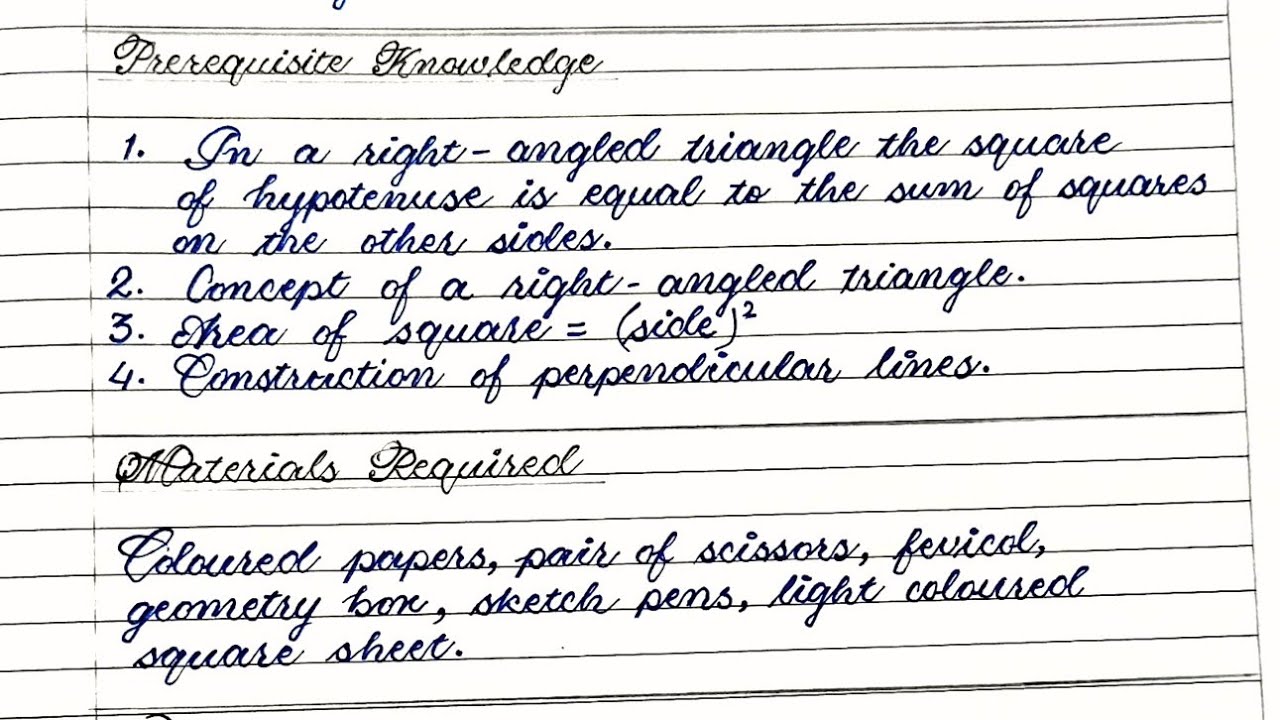 Prerequisite Knowledge
1. In a right-angled triangle the square
of hypotenuse is equal to the sum of squares
on the other sides.
2. Concept of a right-angled triangle.
3. Area of square = (side)²
4. Construction of perpendicular lines.
Materials Required
Coloured papers, pair of scissors, fevicol,
geometry box, sketch pens, light coloured
square sheet.